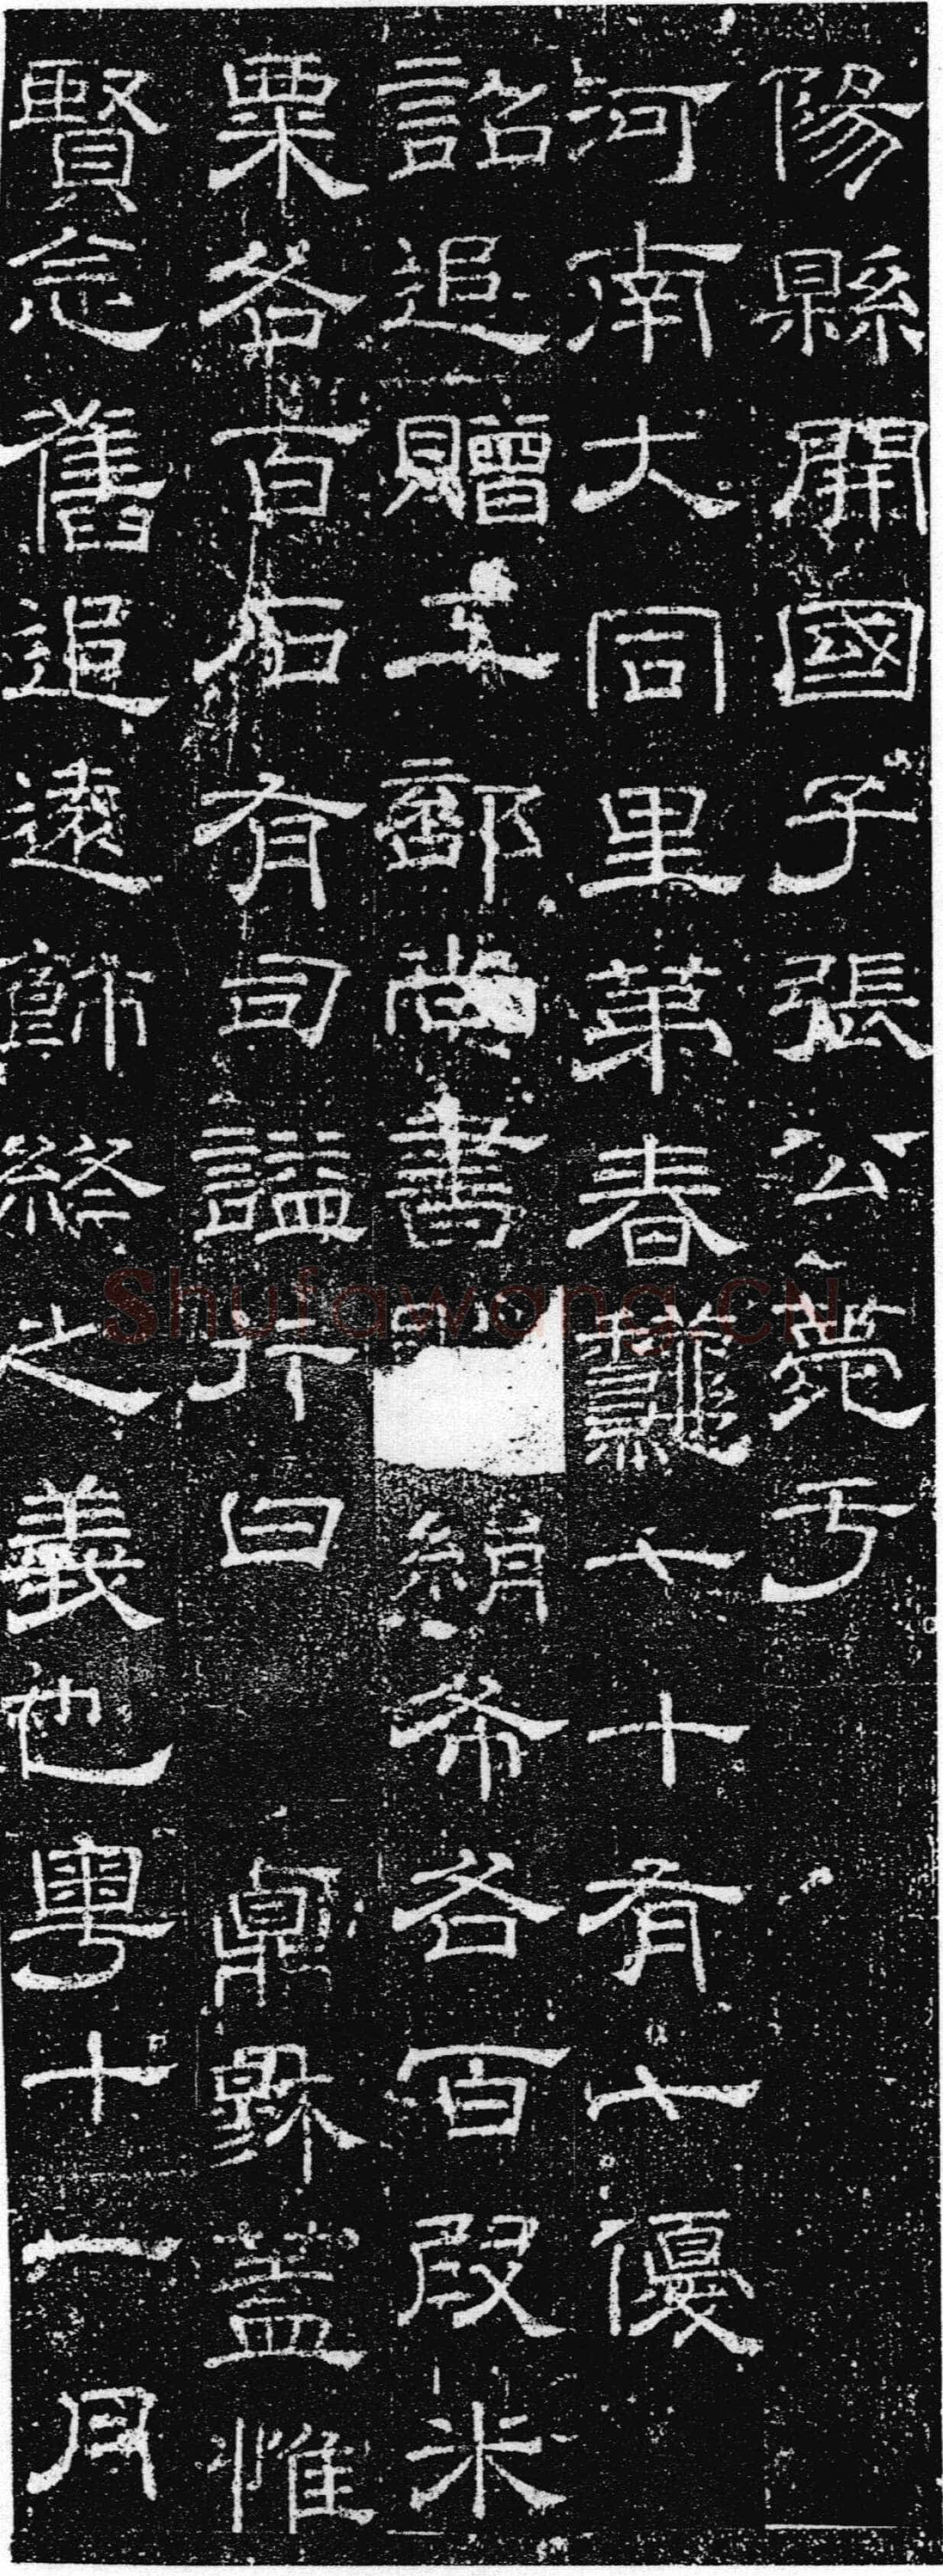 陽縣開國子張公薨于
河南大同里第春龝七十有七優
詔追贈工部尚書絹布各百段米
粟各百石有司謚行曰貞蓋惟
賢念舊追遠飾終之義也粵十一月
Shufawang.CN